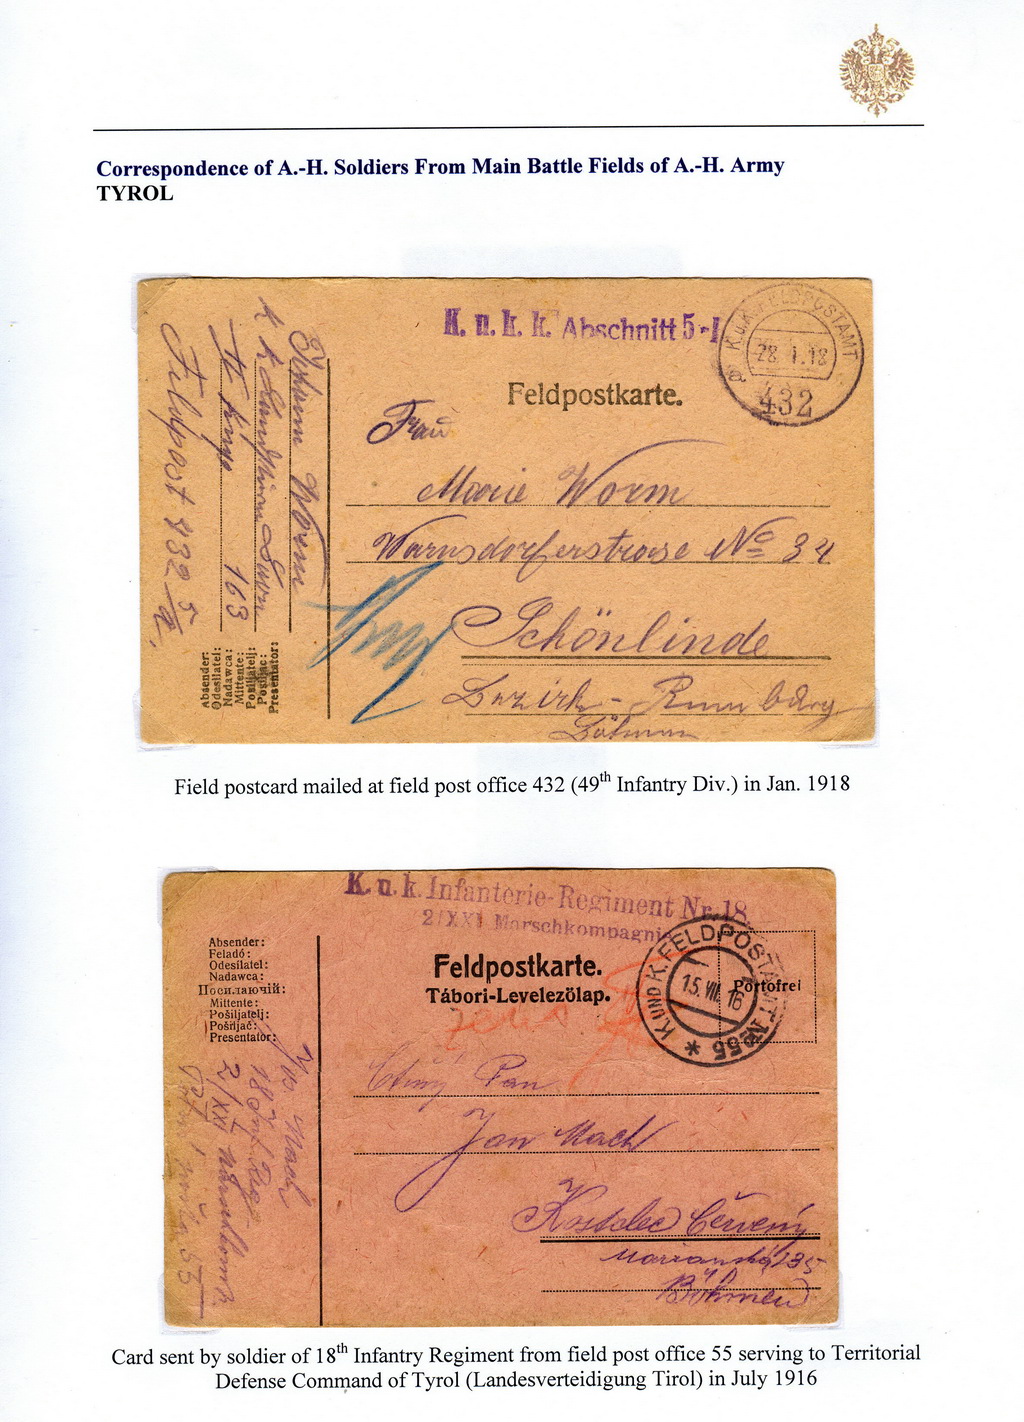 Correspondence of A.-H. Soldiers From Main Battle Fields of A.-H. Army
TYROL
K. u. k. k. Abschnitt 5-I
K.u.K. FELDPOSTAMT
28 1.18
432
Feldpostkarte.
Frau
Marie Worm
Warnsdorferstrasse No 34
Schönlinde
Bezirk - Rumburg
Böhmen
Johann Worm
163
Feldpost 432
Absender:
Odesílatel:
Nadawca:
Mittente:
Pošiljatelj:
Pošiljač:
Presentator:
Field postcard mailed at field post office 432 (49th Infantry Div.) in Jan. 1918
K. u. k. Infanterie-Regiment Nr. 18
2/XXI Marschkompagnie
K. UND K. FELDPOSTAMT No 55
15. VII. 16
Portofrei
Feldpostkarte.
Tábori-Levelezölap.
Absender:
Feladó:
Odesílatel:
Nadawca:
Посилаючій:
Mittente:
Pošiljatelj:
Pošiljač:
Presentator:
Ctěný Pan
Jan Mach
Kostelec Červený
Marianská 235
Böhmen
Jos. Mach
18 Inf. Reg.
2/XXI
55
Card sent by soldier of 18th Infantry Regiment from field post office 55 serving to Territorial
Defense Command of Tyrol (Landesverteidigung Tirol) in July 1916